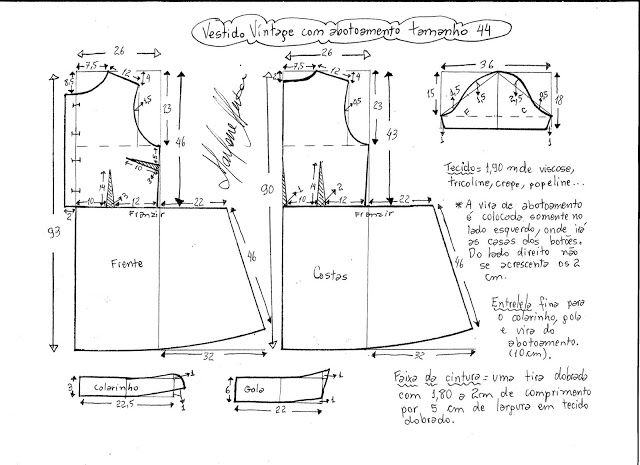 Vestido Vintage com abotoamento tamanho 44
26
7,5
12
4
8,5
1,5
23
46
93
10
3
14
3
10
12
22
2
Franzir
Frente
46
32
26
7,5
12
4
23
43
90
1
14
2
10
12
22
Franzir
Costas
46
32
36
15
1,5
1,5
2,5
0,5
18
F
C
1
1
Tecido = 1,90 m de viscose,
tricoline, crepe, popeline...
* A vira de abotoamento
é colocada somente no
lado esquerdo, onde irá
as casas dos botões.
Do lado direito não
se acrescenta os 2
cm.
Entretela fina para
o colarinho, gola
e vira do
abotoamento.
(10cm).
3
Colarinho
22,5
1
1
6
Gola
22
1
1
Faixa da cintura = uma tira dobrada
com 1,80 a 2m de comprimento
por 5 cm de largura em tecido
dobrado.